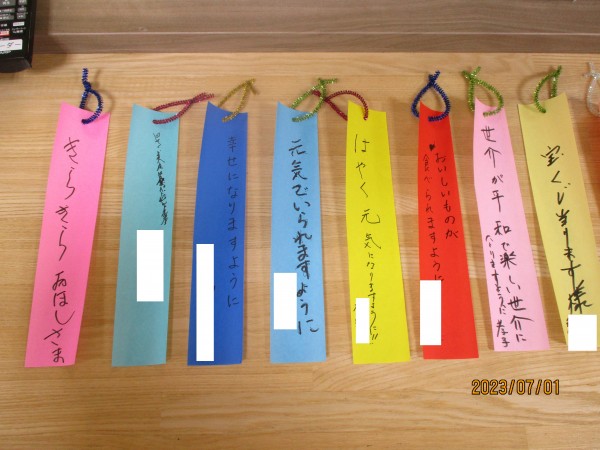 きらきら おほしさま
幸せになりますように
元気でいられますように
はやく元気になりますように!!
♥おいしいものが
食べられますように
世介が平和で楽しい世介に
なりますように 孝子
宝くじ当ります様
2023/07/01